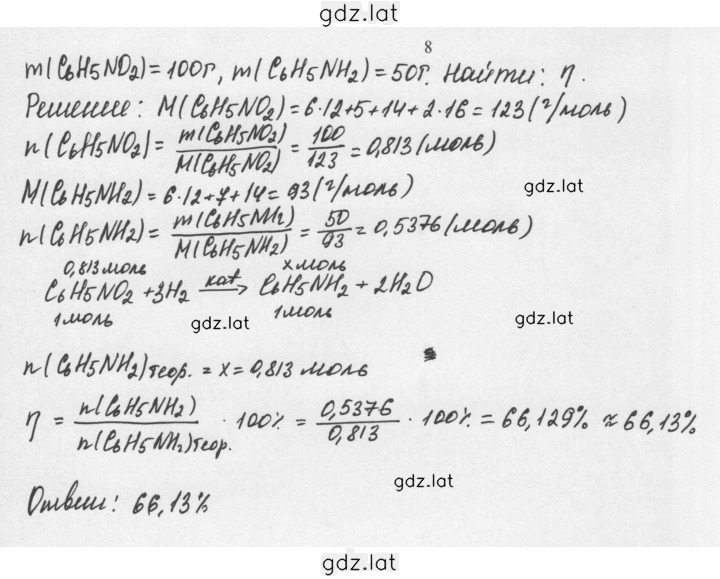 gdz.lat
8
m(C6H5NO2)=100г, m(C6H5NH2)=50г. Найти: η.
Решение: M(C6H5NO2)=6·12+5+14+2·16=123(г/моль)
n(C6H5NO2)= m(C6H5NO2)/M(C6H5NO2) = 100/123 = 0,813(моль)
M(C6H5NH2)=6·12+7+14=93(г/моль) gdz.lat
n(C6H5NH2)= m(C6H5NH2)/M(C6H5NH2) = 50/93 = 0,5376(моль)
0,813моль xмоль
C6H5NO2 +3H2 kat→ C6H5NH2 + 2H2O
1моль 1моль
gdz.lat gdz.lat
n(C6H5NH2)теор. = x = 0,813 моль
η = n(C6H5NH2)/n(C6H5NH2)теор. · 100% = 0,5376/0,813 · 100% = 66,129% ≈ 66,13%
gdz.lat
Ответ: 66,13%
gdz.lat